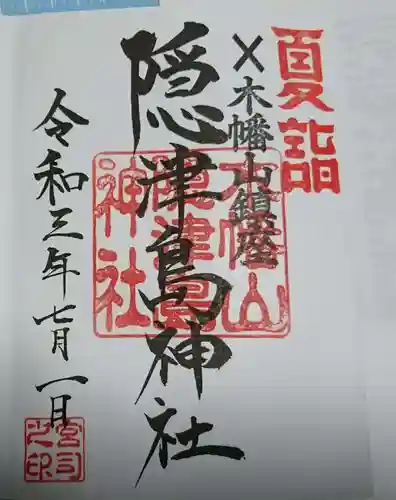 夏詣
木幡山鎮座
隠津島神社
令和三年七月一日
木幡山
隠津島
神社
宮司
之印